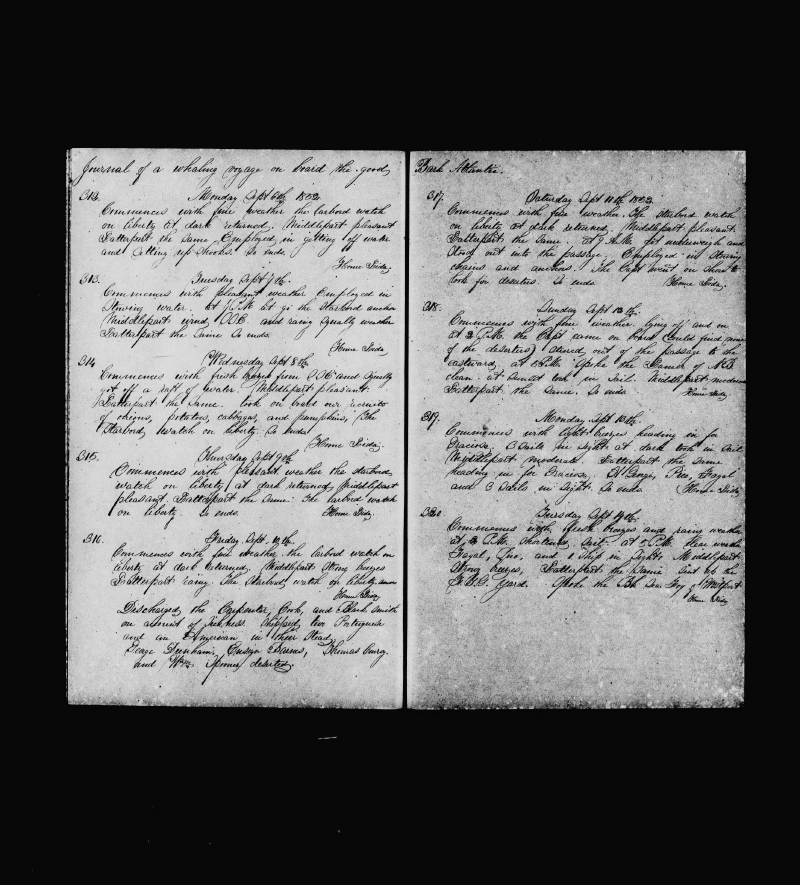 Journal of a whaling voyage on board the good
312. Monday Sept 6th
Commences with fine weather the larbord watch
on liberty at dark returned. Middlepart pleasant
Latterpart the same Employed in getting off water
and setting up shooks. So ends
313. Tuesday Sept 7th.
Commences with pleasant weather Employed in
stowing water. at 7 P.M. let go the starbord anchor
Middlepart wind and rainy squally weather
Latterpart the same So ends.
314 Wednesday Sept 8th.
Commences with fresh from and squally
got off a raft of water. Middlepart pleasant.
Latterpart the same. took on board our recruits
of onions, potatoes, cabbages, and pumpkins, the
Starbord watch on liberty. So ends.
315. Thursday Sept 9th
Commences with pleasant weather the starbord
watch on liberty at dark returned, Middlepart
pleasant. Latterpart the same. The larbord watch
on liberty So ends
316. Friday Sept. 10th.
Commences with fine weather the larbord watch on
liberty at dark returned, Middlepart strong breezes
Latterpart rainy. The starbord watch on liberty
Discharged the Carpenter, Cook, and Black smith
on account of sickness. Shipped two Portuguese
and an American in their stead.
and Wm. deserted.
Bark Atlantic.
317. Saturday Sept 11th
Commences with fine weather. The starbord watch
on liberty at dark returned, Middlepart pleasant.
Latterpart the same. at 9 A.M. got underweigh and
stood out into the passage. Employed in stowing
chains and anchors. The Capt went on shore to
look for deserters. So ends
318. Sunday Sept 12th.
Commences with fine weather, lying off and on
at 3 P.M. the Capt came on board (could find none
of the deserters) steered out of the passage to the
eastward, at Spoke the of N.B.
clean. at sunset took in sail. Middlepart moderate
Latterpart the same. So ends
319. Monday Sept 13th.
Commences with light breezes heading in for
Graciosa, 3 Sails in sight at dark took in sail
Middlepart moderate. Latterpart the same
heading in for Graciosa. St George, Pico, Fayal
and 3 Sails in sight. So ends
320. Tuesday Sept 14th.
Commences with fresh breezes and rainy weather
at 3 P.M. shortened sail. at
Fayal, Pico, and 1 Ship in sight. Middlepart
strong breezes, Latterpart the same Sent up the
Yard. Spoke the Bk of Westport